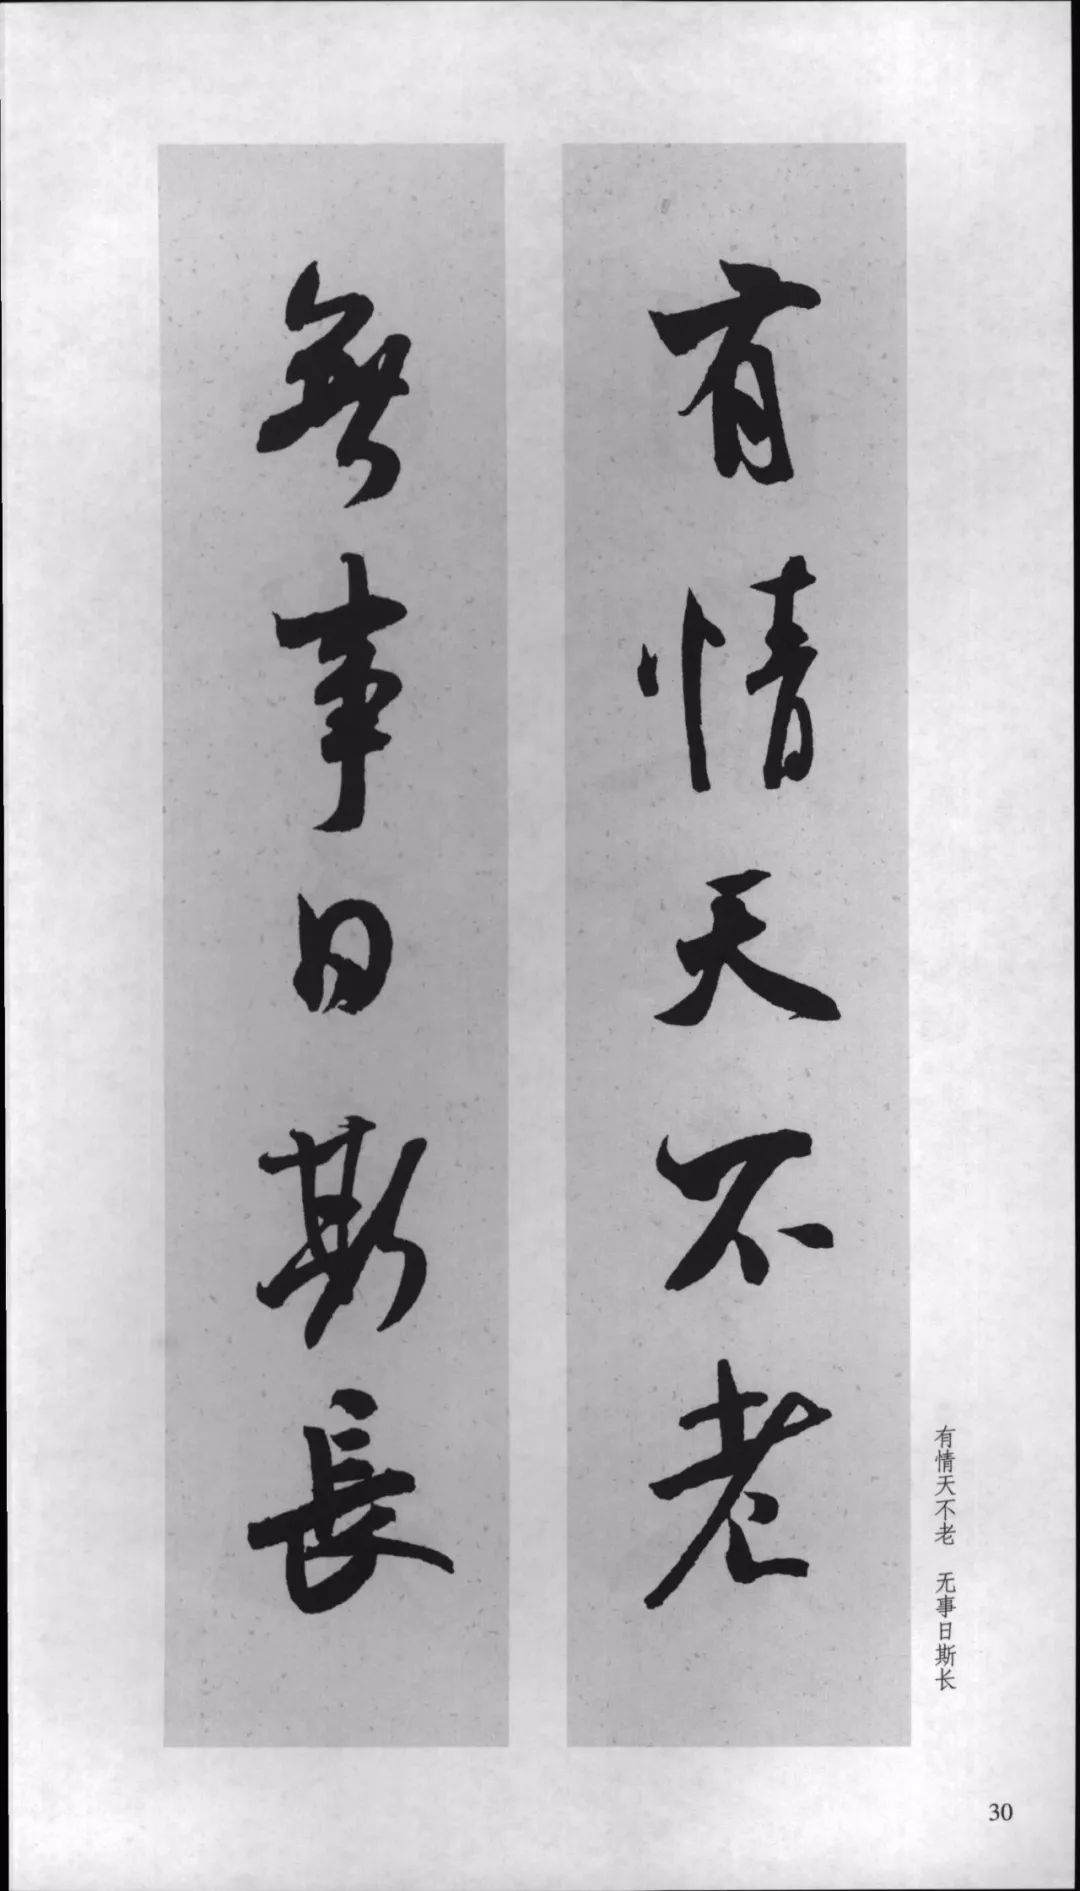 有情天不老
無事日斯長
有情天不老　无事日斯长
30